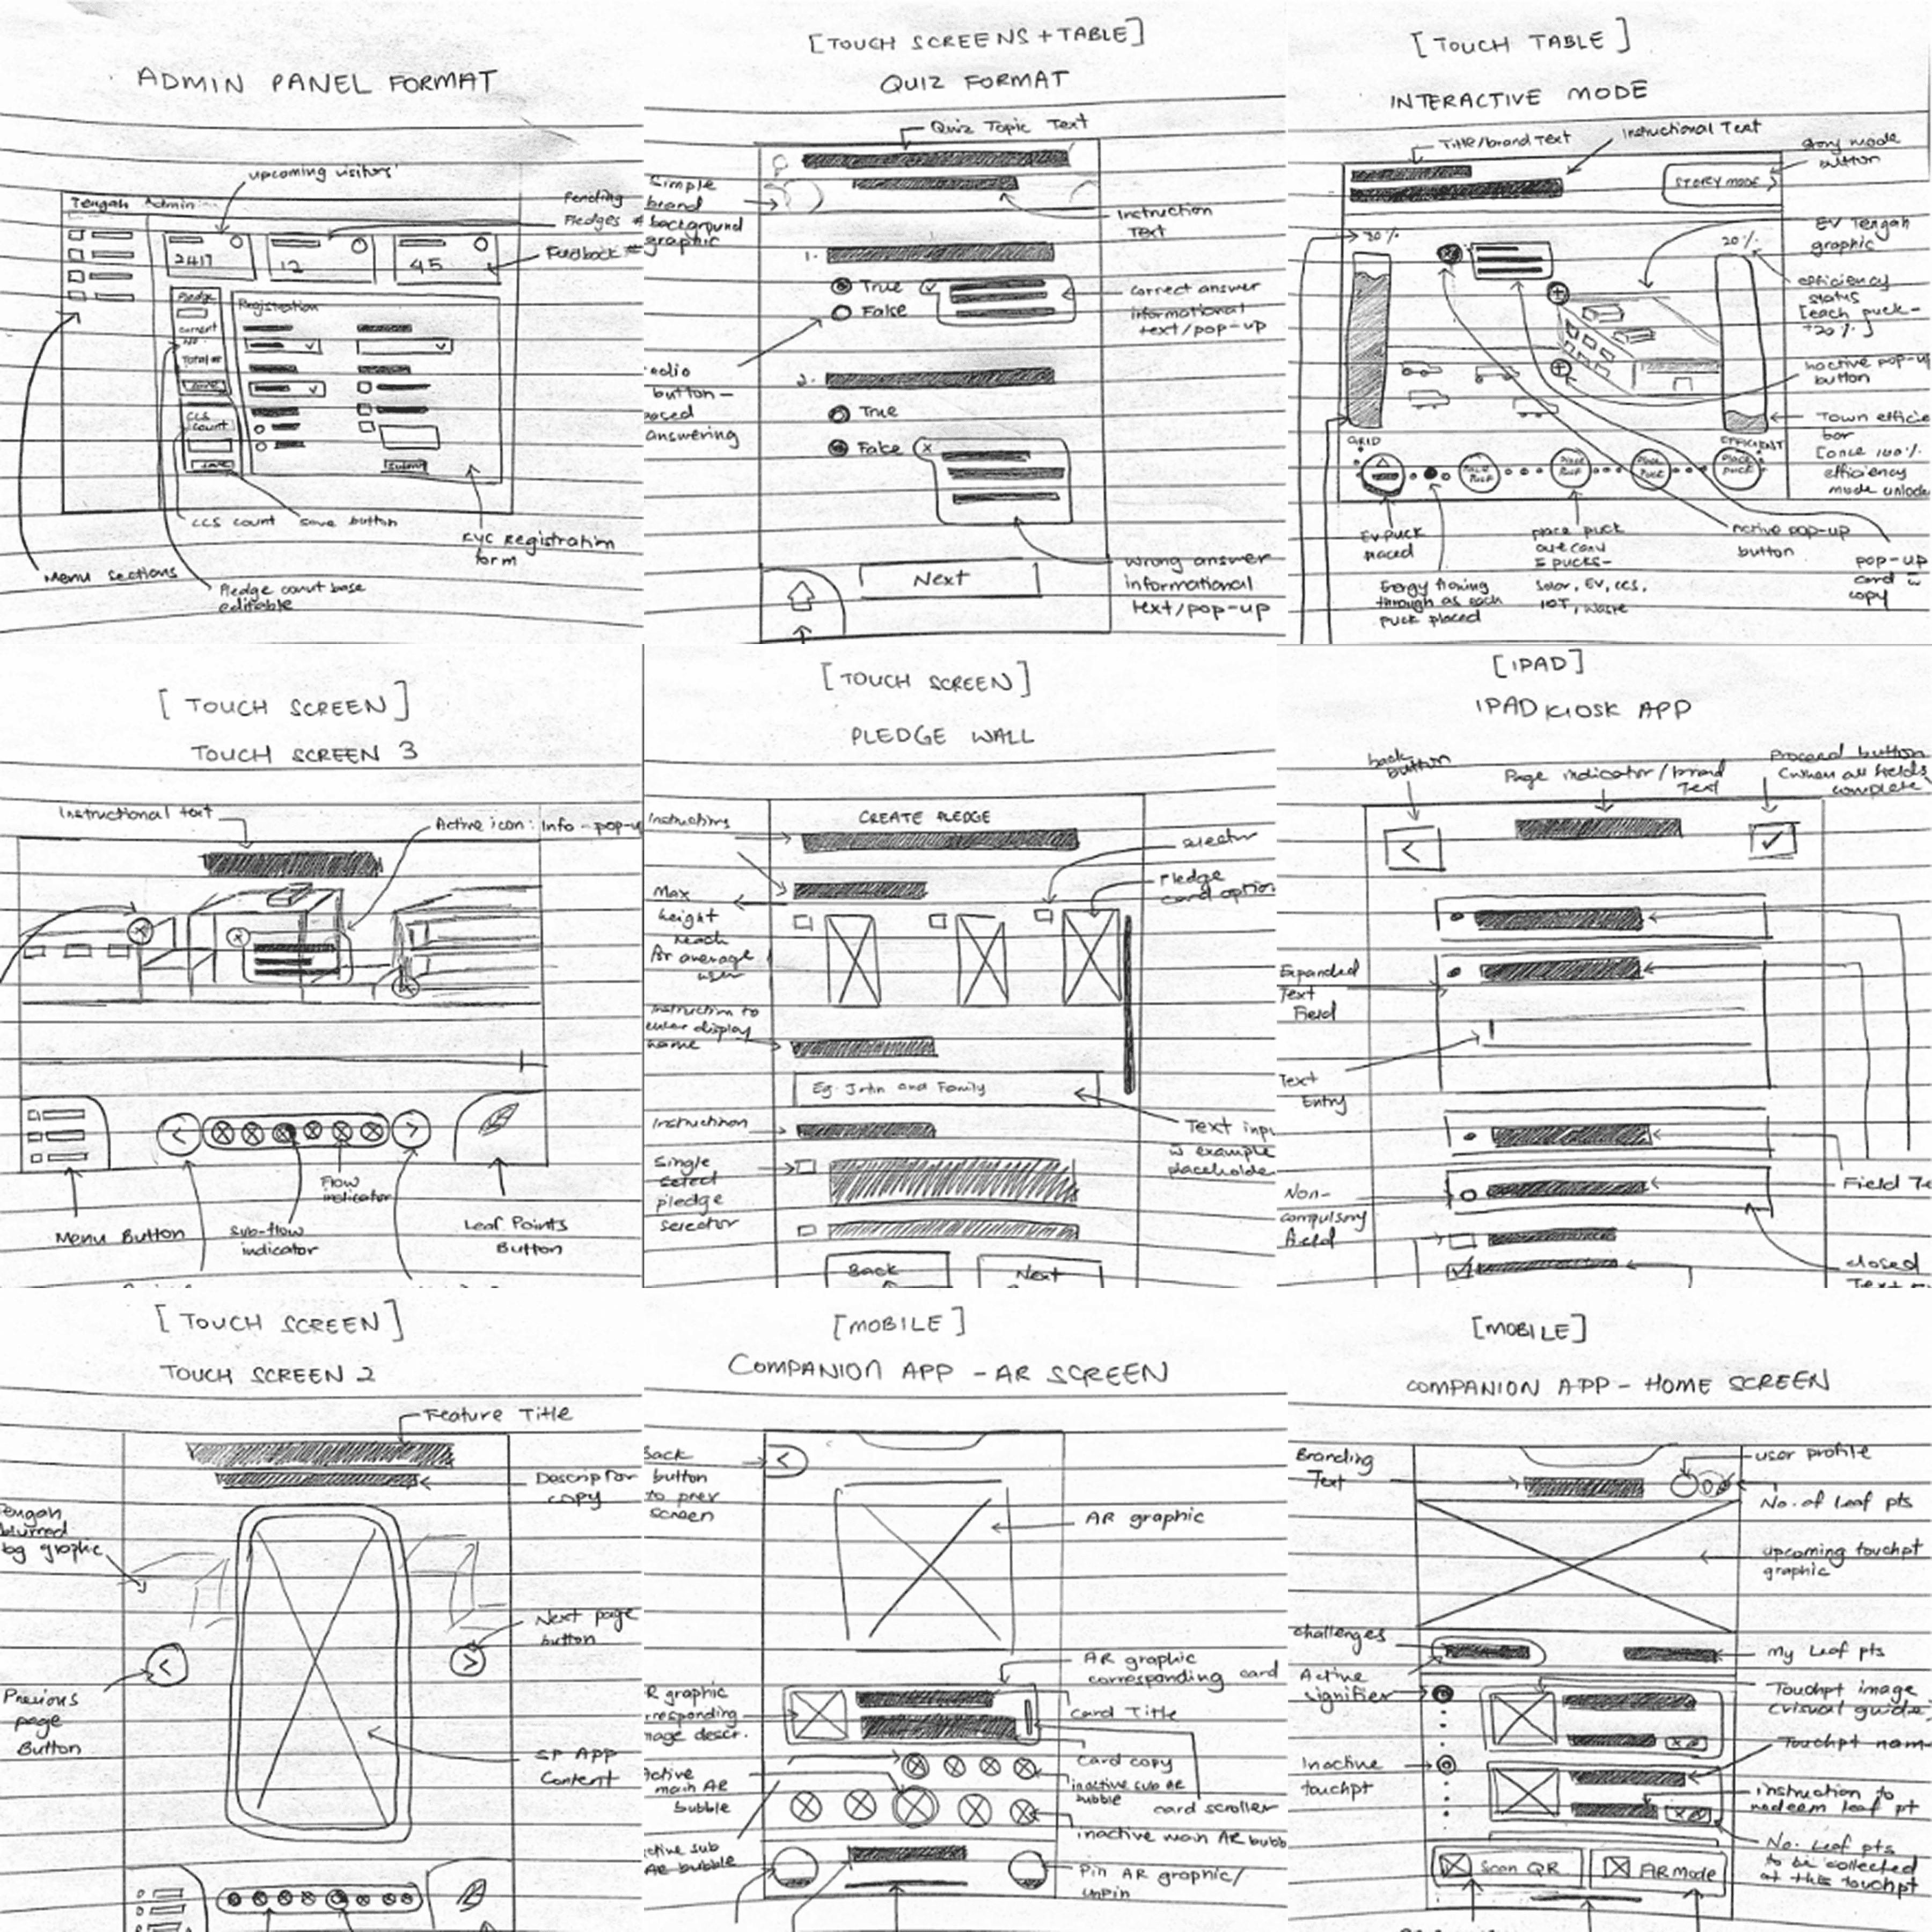 ADMIN PANEL FORMAT
upcoming visitors'
Tengah Admin
Pending
Pledges
Feedback
2417
12
45
Pledge
Registration
current
no.
Total
save
CCS
count
save
Submit
CCS count
save button
KYC Registration
form
Menu sections
Pledge count base
editable
[TOUCH SCREENS + TABLE]
QUIZ FORMAT
Quiz Topic Text
Simple
brand
background
graphic
Instruction
Text
1.
True
False
correct answer
informational
text/pop-up
button-
answering
2.
True
False
Wrong answer
informational
text/pop-up
Next
[TOUCH TABLE]
INTERACTIVE MODE
Title/brand Text
Instructional Text
Story mode
button
STORY MODE >
EV Tengah
graphic
80%
20%
efficiency
status
[each puck-
+20%]
Inactive pop-up
button
Town efficie
bar
[once 100%
efficiency
mode unlock
GRID
EFFICIENT
PLACE
PUCK
PLACE
PUCK
PLACE
PUCK
PLACE
PUCK
EV PUCK
placed
Energy flowing
through as each
puck placed
place puck
5 pucks-
Solar, EV, CCS,
IOT, Waste
Active pop-up
button
pop-up
card w
copy
[TOUCH SCREEN]
TOUCH SCREEN 3
Instructional text
Active icon: Info-pop-u
Menu Button
Flow
indicator
Sub-flow
indicator
Leaf Points
Button
[TOUCH SCREEN]
PLEDGE WALL
Instructions
CREATE PLEDGE
selector
Pledge
card option
Max
height
reach
for average
user
Instruction to
enter display
name
Eg. John and Family
Instruction
Text inpu
w example
placeholde
Single
select
pledge
selector
Back
Next
[IPAD]
IPAD KIOSK APP
back
button
Page indicator/brand
Text
Proceed button
(when all fields
complete
Expanded
Text
Field
Text
Entry
Field Te
Non-
compulsory
field
closed
[TOUCH SCREEN]
TOUCH SCREEN 2
Feature Title
Descriptor
copy
Tengah
blurred
bg graphic
Next page
button
Previous
page
Button
SP App
Content
[MOBILE]
COMPANION APP - AR SCREEN
Back
button
to prev
screen
AR graphic
AR graphic
corresponding card
R graphic
rresponding
mage descr.
Card Title
card copy
Active
main AR
bubble
inactive sub AR
bubble
card scroller
inactive main AR bubb
ctive sub
AR bubble
Pin AR graphic/
unpin
[MOBILE]
COMPANION APP - HOME SCREEN
Branding
Text
user profile
No. of Leaf pts
upcoming touchpt
graphic
challenges
My Leaf pts
Active
signifier
Touchpt image
(visual guide)
Touchpt nam
Inactive
touchpt
instruction to
redeem leaf pt
No. Leaf pts
to be collected
at this touchpt
Scan QR
AR Mode